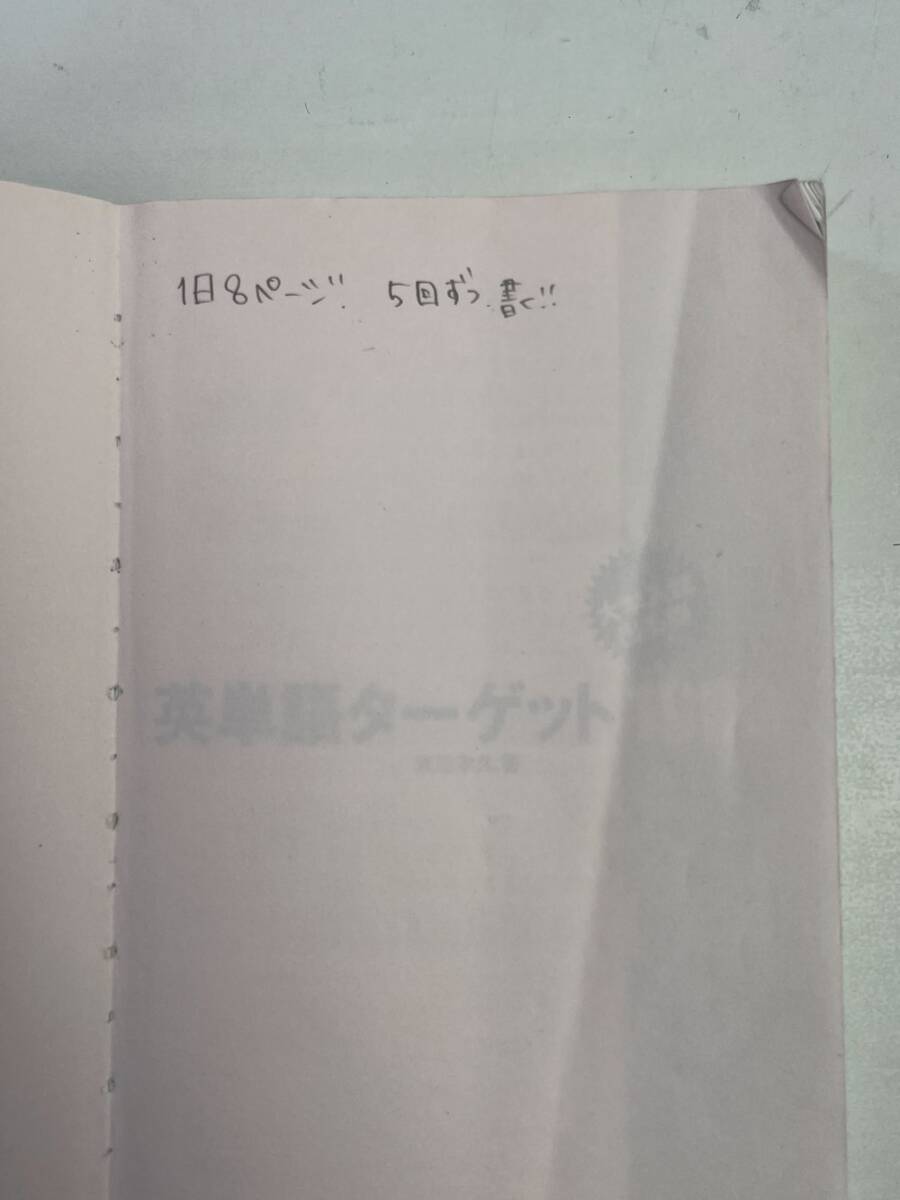 1日8ページ 5回ずつ書く!!
英単語ターゲット